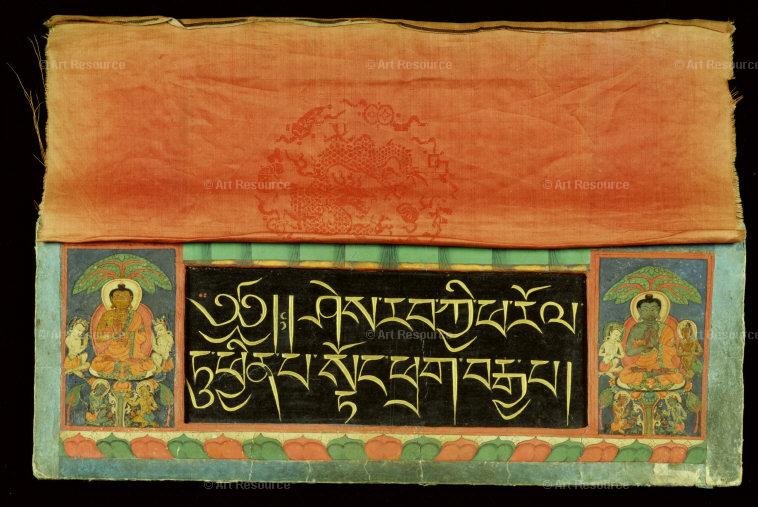 © Art Resource © Art Resource © Art Resource
© Art Resource © Art Resource
༄༅། །ཤེས་རབ་ཀྱི་ཕ་རོལ་
© Art Resource © Art Resource © Art Resource
ཏུ་ཕྱིན་པ་སྟོང་ཕྲག་བརྒྱ་པ།
© Art Resource © Art Resource